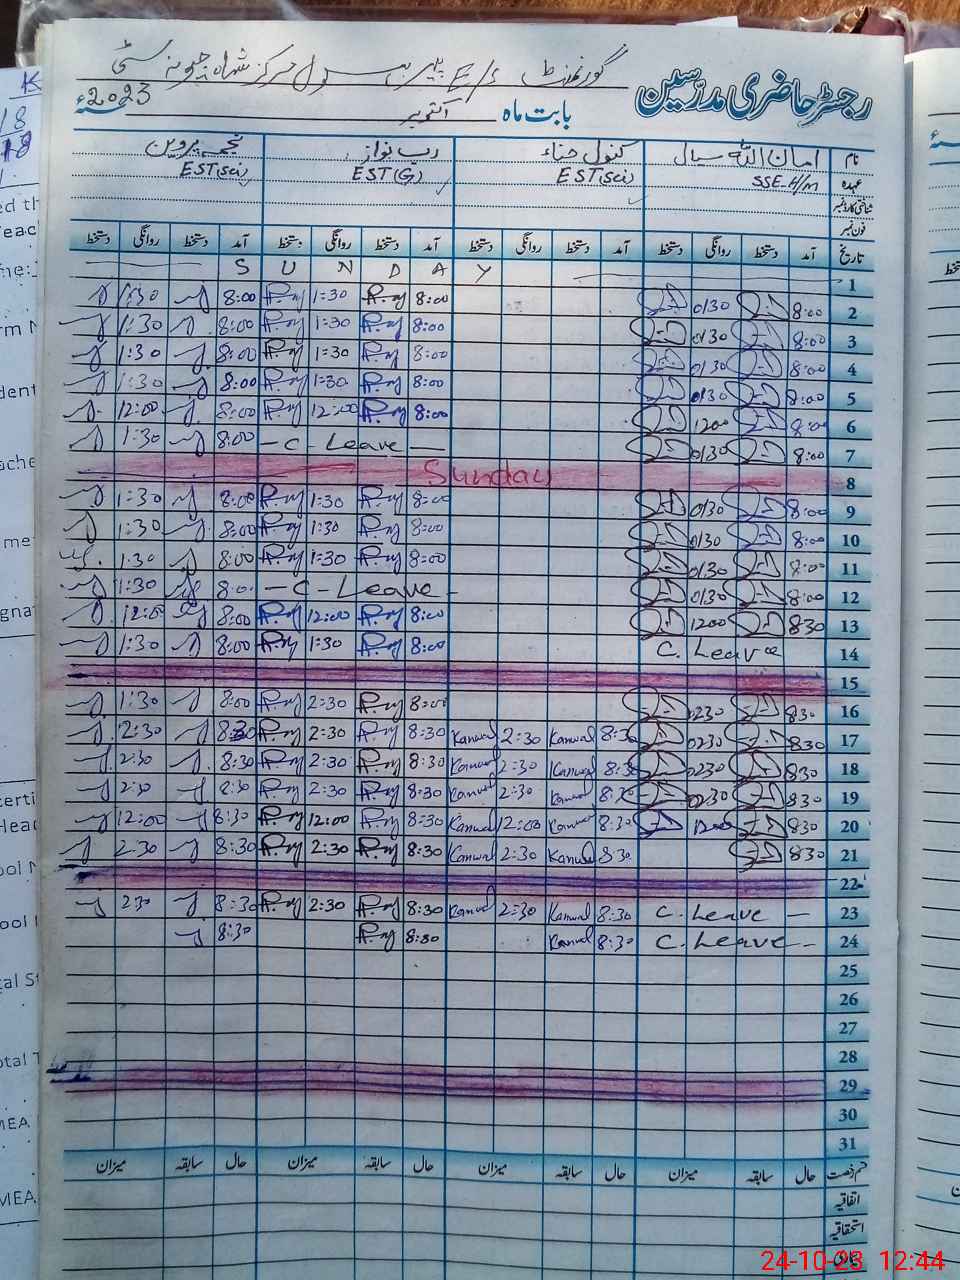 گورنمنٹ
رجسٹر حاضری مدرسین
بابت ماہ اکتوبر 2023ء
نام امان اللہ سیال کنول حناء رب نواز نجمہ پروین
عہدہ SSE H/M EST(Sci) EST(G) EST(Sci)
شناختی کارڈ نمبر
فون نمبر
تاریخ آمد دستخط روانگی دستخط آمد دستخط روانگی دستخط آمد دستخط روانگی دستخط آمد دستخط روانگی دستخط
S U N D A Y 1
1:30 8:00 1:30 8:00 0130 8:00 2
1:30 8:00 1:30 8:00 0130 8:00 3
1:30 8:00 1:30 8:00 0130 8:00 4
1:30 8:00 1:30 8:00 0130 8:00 5
12:00 8:00 12:00 8:00 1200 8:00 6
1:30 8:00 - C - Leave - 0130 8:00 7
Sunday 8
1:30 8:00 1:30 8:00 0130 8:00 9
1:30 8:00 1:30 8:00 0130 8:00 10
1:30 8:00 1:30 8:00 0130 8:00 11
1:30 8:0 - C - Leave - 0130 8:00 12
12:00 8:00 12:00 8:00 1200 830 13
1:30 8:00 1:30 8:00 C. Leave 14
15
1:30 8:00 2:30 8:00 0230 830 16
2:30 8:30 2:30 8:30 Kanwal 2:30 Kanwal 8:30 0230 830 17
2:30 8:30 2:30 8:30 Kanwal 2:30 Kanwal 8:30 0230 830 18
2:30 8:30 2:30 8:30 Kanwal 2:30 Kanwal 8:30 0230 830 19
12:00 8:30 12:00 8:30 Kanwal 12:00 Kanwal 8:30 1200 830 20
2:30 8:30 2:30 8:30 Kanwal 2:30 Kanwal 8:30 830 21
22
2:30 8:30 2:30 8:30 Kanwal 2:30 Kanwal 8:30 C. Leave - 23
8:30 8:30 Kanwal 8:30 C. Leave - 24
25
26
27
28
29
30
31
قسم رخصت حال سابقہ میزان حال سابقہ میزان حال سابقہ میزان حال سابقہ میزان
اتفاقیہ
استحقاقیہ
24-10-23 12:44